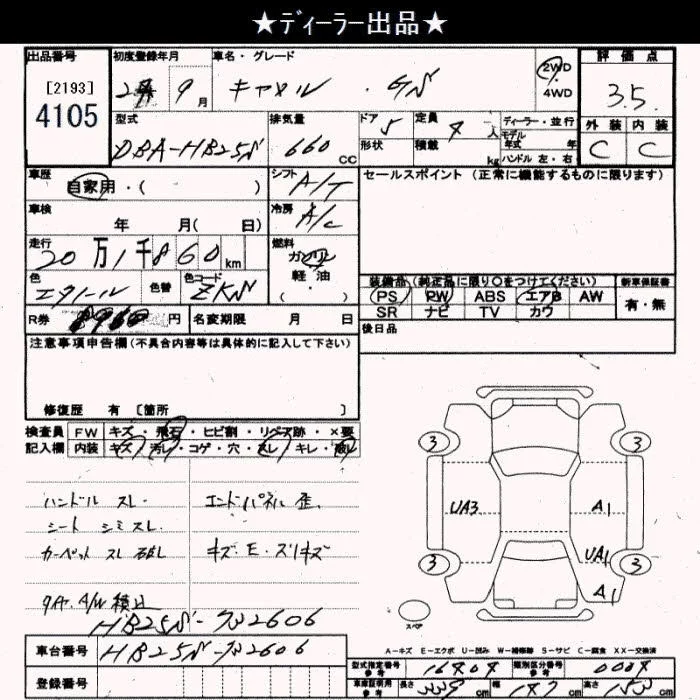 ★ディーラー出品★
出品番号 初度登録年月 車名・グレード 評価点
[2193] 9月 キャロル・GS 2WD 4WD 3.5
4105
型式 排気量 ドア 定員 ディーラー・並行 外装 内装
DBA-HB25S 660 CC 5 4人 モデル年式 年 C C
形状 積載 kg ハンドル 左・右
車歴 自家用・( ) シフト A/T セールスポイント (正常に機能するものに限ります)
車検 年 月( 日) 冷房 A/C
走行 20万1千860km 燃料 ガソリン 軽油 ( )
色 色替 色コード ZKN
装備品 (純正品に限り○をつけてください) 新車保証書
PS PW ABS エアB AW 有・無
SR ナビ TV カワ
R券 円 名変期限 月 日 後日品
注意事項申告欄 (不具合内容等は具体的に記入して下さい)
修復歴 有 [箇所 ]
検査員 FW キズ・飛石・ヒビ割・リペア跡・×要
記入欄 内装 キズ・汚レ・コゲ・穴・スレ・キレ・破レ
ハンドル スレ エンドパネル 歪
シート シミ スレ
カーペット スレ 破レ キズ E・スリキズ
タイヤ、A/W 積込
3 3
UA3 A1
UA1
3 3
A1
スペア
A-キズ E-エクボ U-凹み W-補修跡 S-サビ C-腐食 XX-交換済
車台番号
登録番号
型式指定番号 参考 類別区分番号 参考
車庫証明用 参考 長さ 339 cm 幅 147 cm 高さ 153 cm